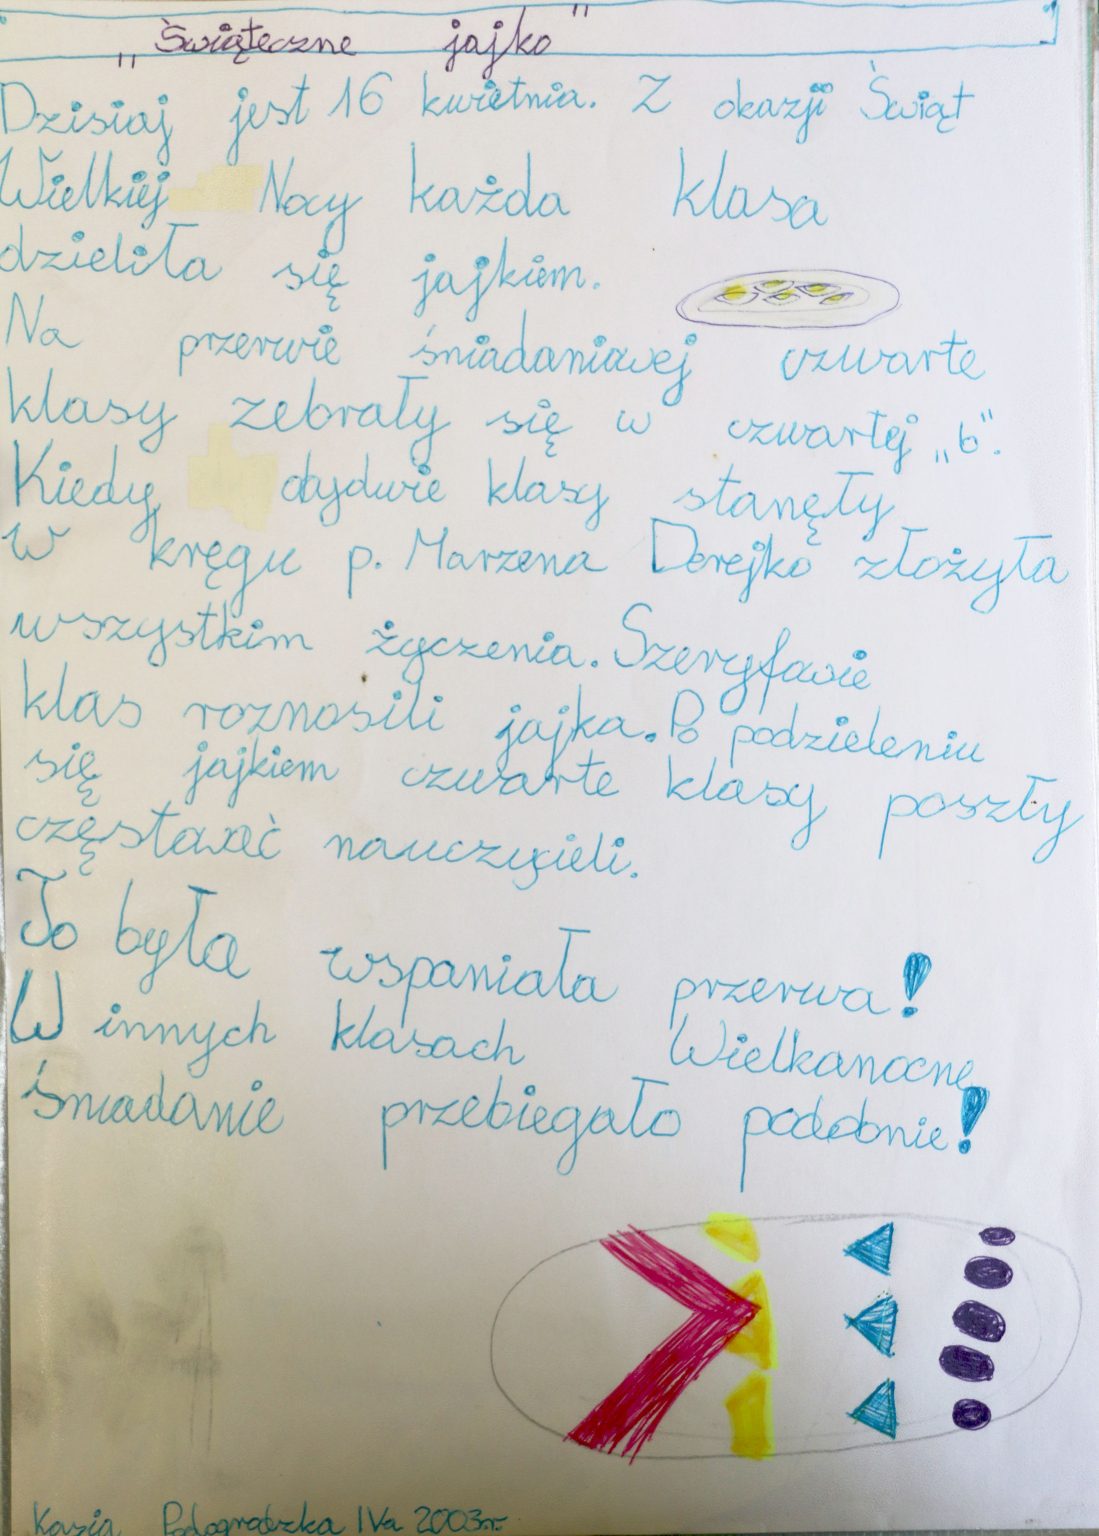 „Świąteczne jajko"
Dzisiaj jest 16 kwietnia. Z okazji Świąt
Wielkiej Nocy każda klasa
dzieliła się jajkiem.
Na przerwie śniadaniowej czwarte
klasy zebrały się w czwartej „b".
Kiedy obydwie klasy stanęły
w kręgu p. Marzena Derejko złożyła
wszystkim życzenia. Szeryfowie
klas roznosili jajka. Po podzieleniu
się jajkiem czwarte klasy poszły
częstować nauczycieli.
To była wspaniała przerwa!
W innych klasach Wielkanocne
śniadanie przebiegało podobnie!
Kasia Podogrodzka IVa 2003r.